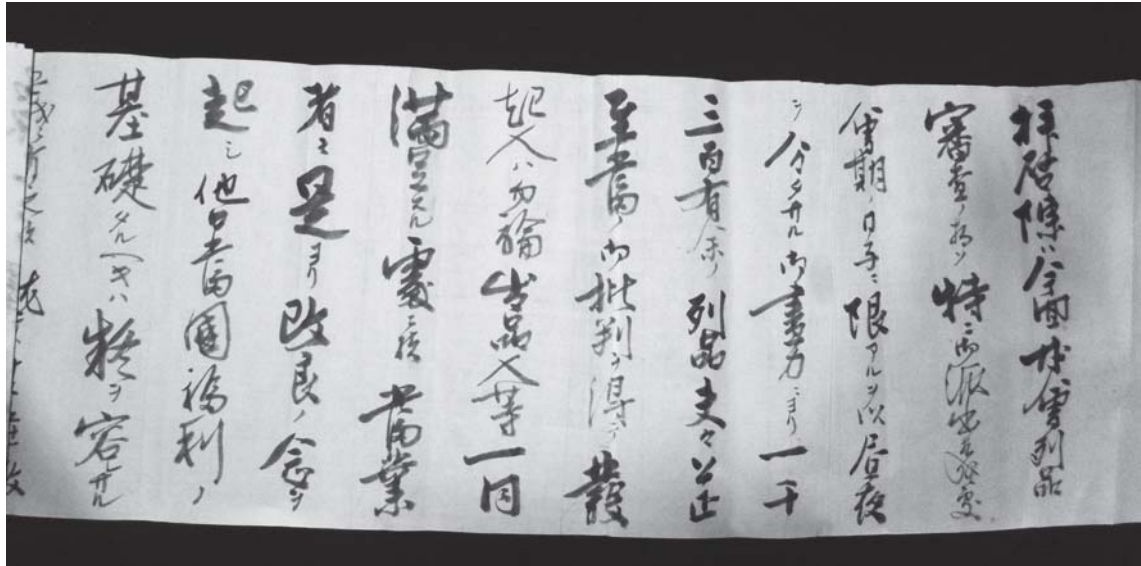 拝啓陳ハ今回博覧列品
審査ノ為メ特ニ御派出相成候處
會期ノ日子ニ限アルヲ以昼夜
ヲ分タサル御盡力ニヨリ一千
三百有余ノ列品夫々公正
至當ノ御批判ヲ得テ発
起人ハ勿論出品人等一同
満足スル處ニ候 當業
者モ是ヨリ改良ノ念ヲ
起シ他日當國福利ノ
基礎タルヘキハ疑ヲ容サル